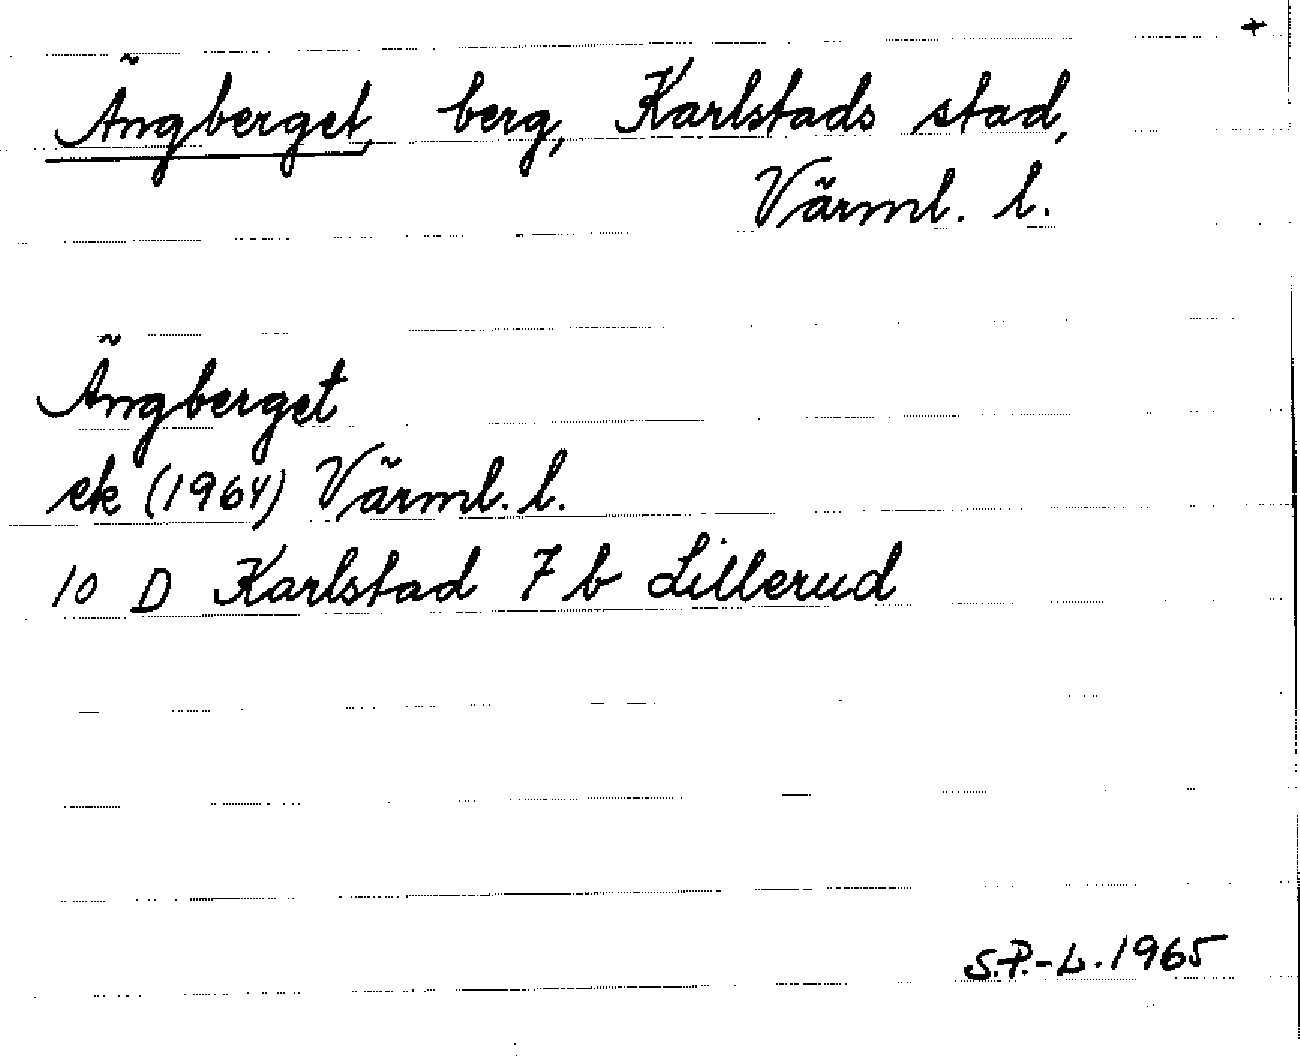 +
Ängberget, berg, Karlstads stad,
Värml. l.
Ängberget
ek (1964) Värml. l.
10 D Karlstad 7 b Lillerud
S.P.-L. 1965